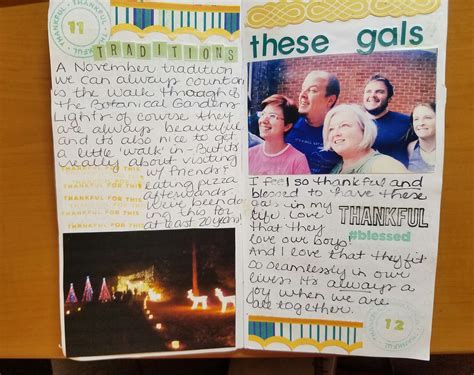 THANKFUL · THANKFUL
11
TRADITIONS
A November tradition
we can always count on
is the walk through
the Botanical Gardens
Lights of course they
are always beautiful
and its also nice to get
a little walk in - But its
really about visiting
w/ friends
eating pizza
afterwards
we've been
doing this for
at least 20 years!
THANKFUL FOR THIS
THANKFUL FOR THIS
THANKFUL FOR THIS
THANKFUL FOR THIS
THANKFUL FOR THIS
these gals
I feel so thankful and
blessed to have these
gals in my
life. I love
that they
love our boys!
And I love that they fit
so seamlessly in our
lives. Its always a
joy when we are
all together.
THANKFUL
#blessed
12